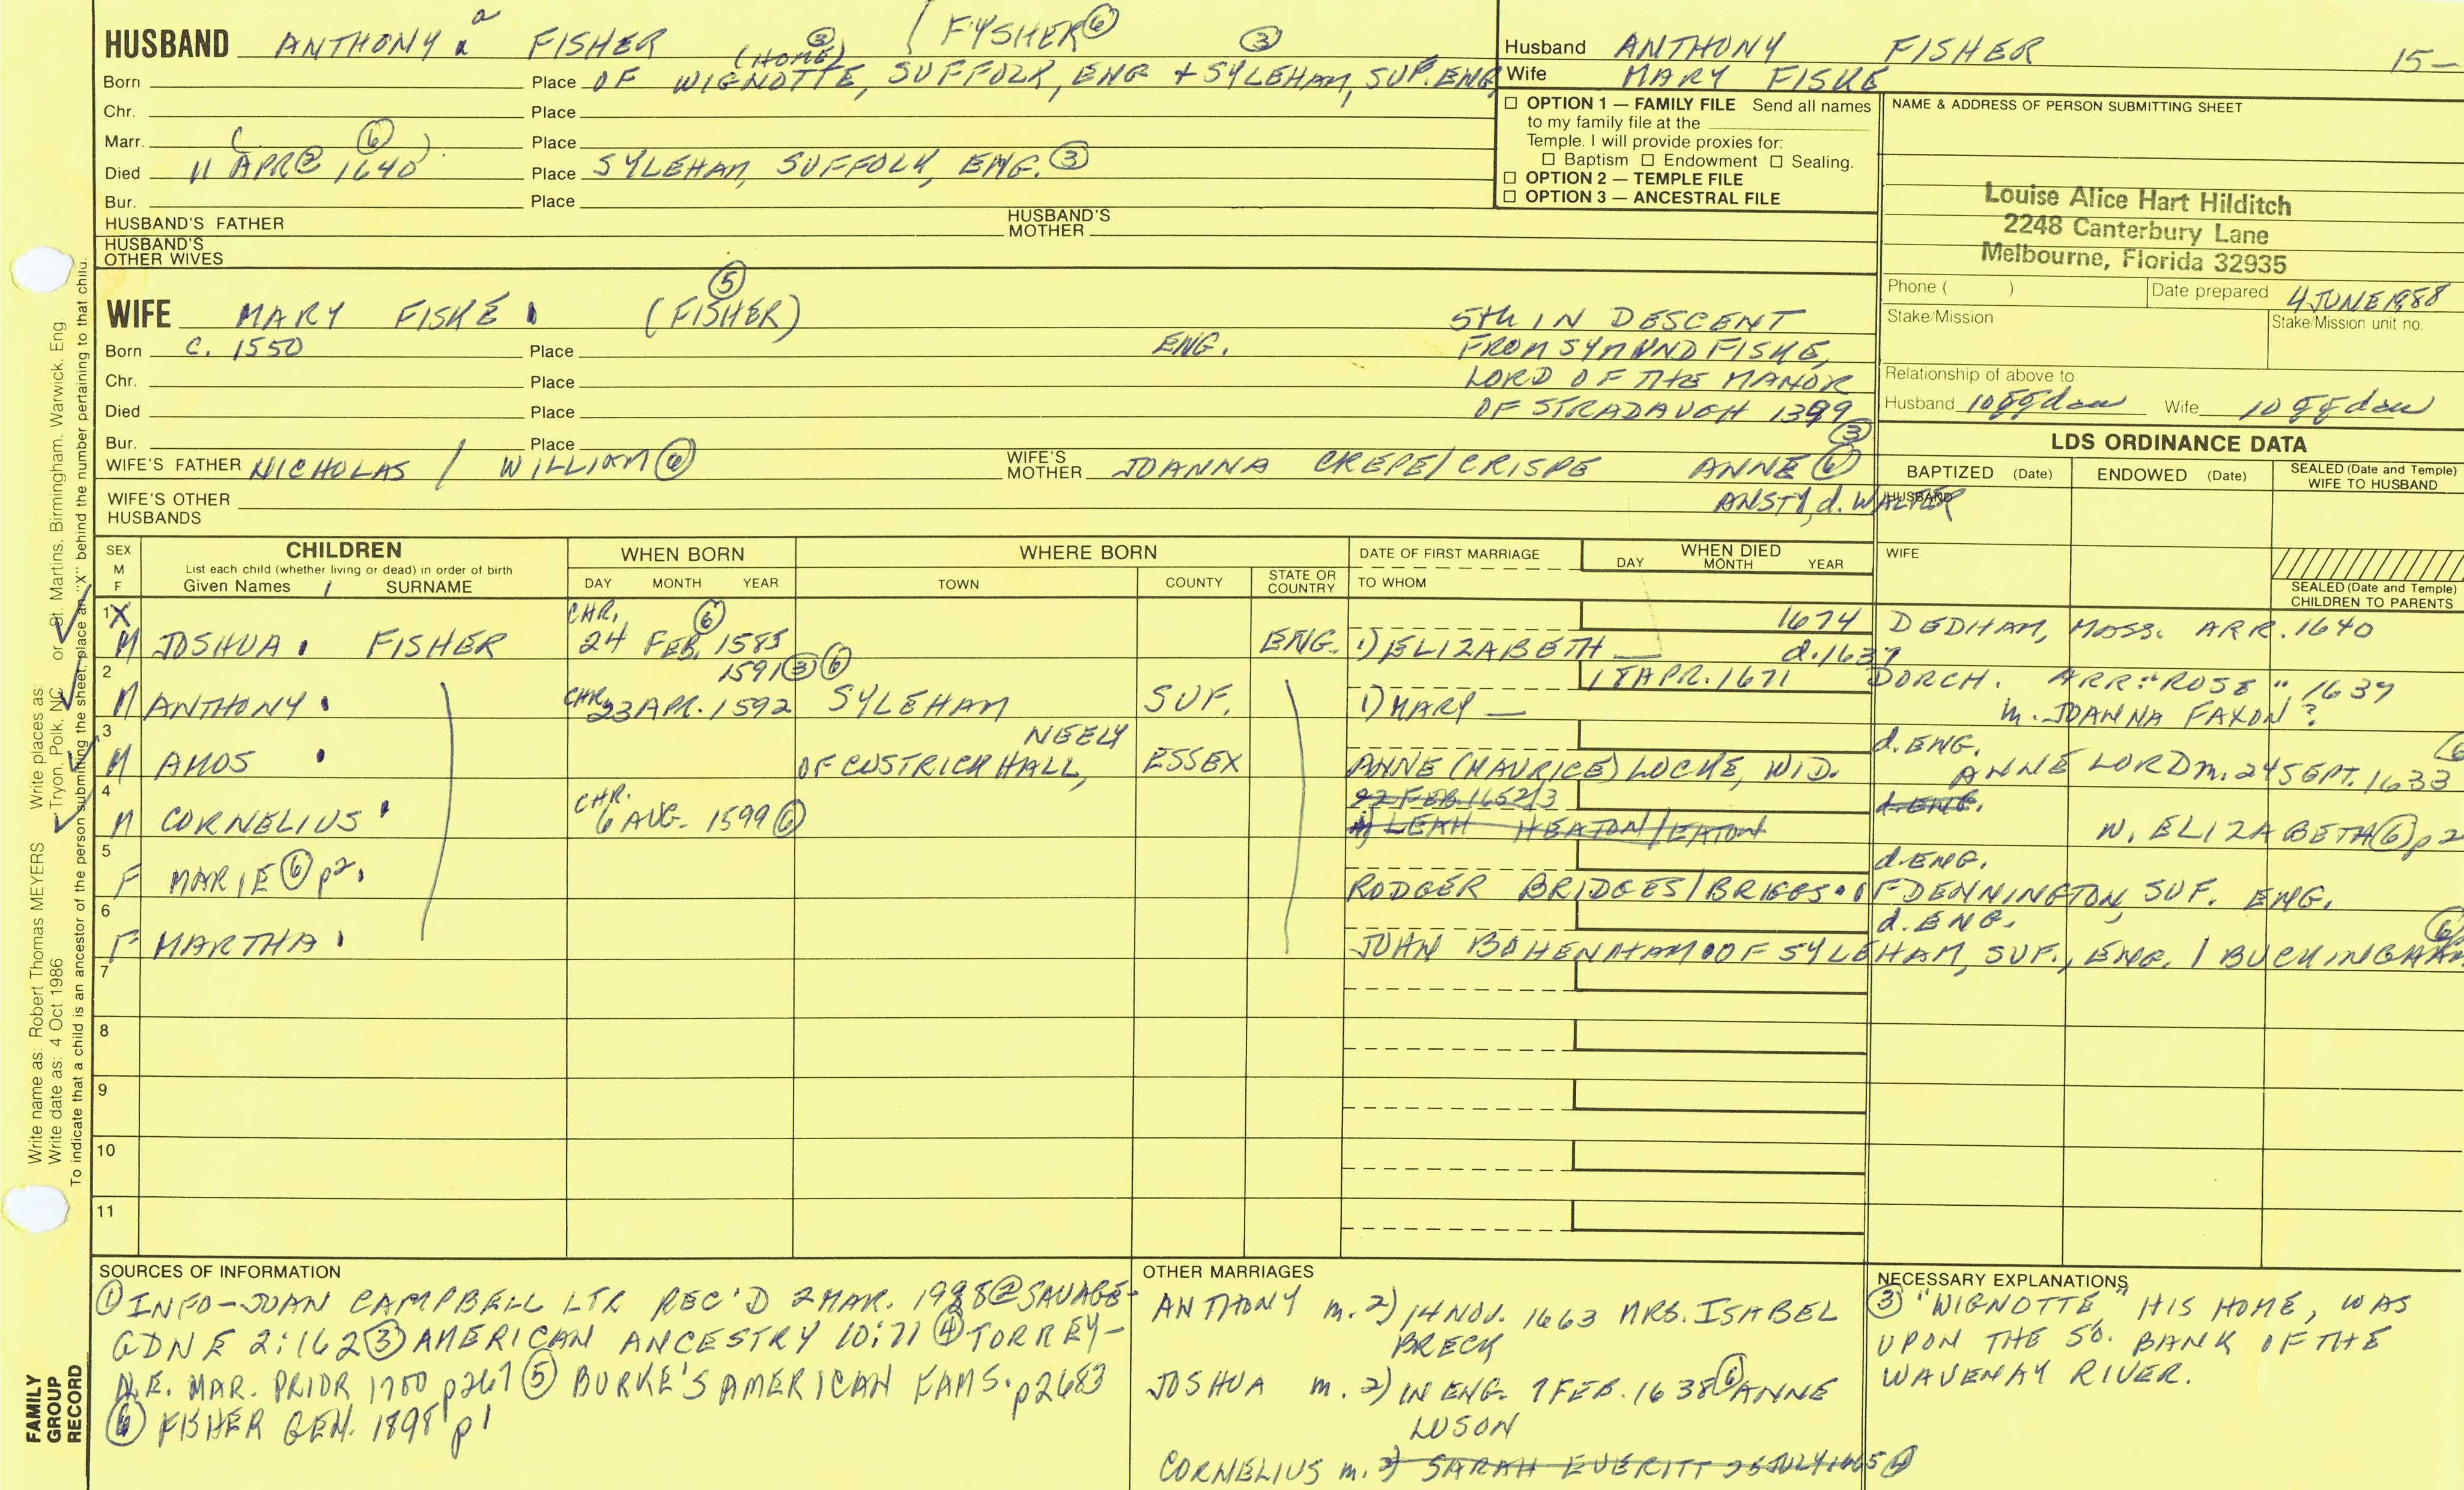 HUSBAND ANTHONY a FISHER / FYSHER ⑥
(HOME) ③ ③
Born Place OF WIGNOTTE, SUFFOLK, ENG + SYLEHAM, SUF. ENG
Chr. Place
Marr. ( ⑥ ) Place
Died 11 APR ② 1640 Place SYLEHAM, SUFFOLK, ENG. ③
Bur. Place
HUSBAND'S FATHER HUSBAND'S MOTHER
HUSBAND'S OTHER WIVES
Husband ANTHONY FISHER 15—
Wife MARY FISKE
☐ OPTION 1 — FAMILY FILE Send all names
to my family file at the
Temple. I will provide proxies for:
☐ Baptism ☐ Endowment ☐ Sealing.
☐ OPTION 2 — TEMPLE FILE
☐ OPTION 3 — ANCESTRAL FILE
NAME & ADDRESS OF PERSON SUBMITTING SHEET
Louise Alice Hart Hilditch
2248 Canterbury Lane
Melbourne, Florida 32935
Phone ( ) Date prepared 4 JUNE 1988
Stake/Mission Stake/Mission unit no.
Relationship of above to
Husband 10 gg dau Wife 10 gg dau
WIFE MARY FISKE (FISHER) ⑤
Born c. 1550 Place ENG.
Chr. Place
Died Place
Bur. Place
5th IN DESCENT
FROM SYMUND FISKE,
LORD OF THE MANOR
OF STRADAUGH 1399
③
WIFE'S FATHER NICHOLAS / WILLIAM ⑥ WIFE'S MOTHER JOANNA CREPE/CRISPE ANNE ⑥
ANSTY, d. WALTER
WIFE'S OTHER HUSBANDS
LDS ORDINANCE DATA
BAPTIZED (Date) ENDOWED (Date) SEALED (Date and Temple) WIFE TO HUSBAND
HUSBAND
WIFE
SEALED (Date and Temple) CHILDREN TO PARENTS
SEX M F CHILDREN WHEN BORN WHERE BORN DATE OF FIRST MARRIAGE WHEN DIED
List each child (whether living or dead) in order of birth
Given Names / SURNAME DAY MONTH YEAR TOWN COUNTY STATE OR COUNTRY TO WHOM DAY MONTH YEAR
1 X CHR. ⑥ 1674
M JOSHUA FISHER 24 FEB. 1585 ENG. 1) ELIZABETH — d. 1637 DEDHAM, MASS. ARR. 1640
2 1591 ③ ⑥ 18 APR. 1671
M ANTHONY CHR. 23 APR. 1592 SYLEHAM SUF. 1) MARY — DORCH. ARR "ROSE", 1637
m. JOANNA FAXON?
3 NEELY d. ENG. ⑥
M AMOS OF CUSTRICH HALL, ESSEX ANNE (MAURICE) LOCKE, WID. ANNE LORD m. 24 SEPT. 1633
4 CHR. 22 FEB. 1652/3 d. ENG.
M CORNELIUS 6 AUG. 1599 ⑥ 1) LEAH HEATON/EATON W. ELIZABETH ⑥ p2
5 d. ENG.
F MARIE ⑥ p2 RODGER BRIDGES/BRIGGS OF DENNINGTON, SUF. ENG.
6 d. ENG. ⑥
F MARTHA JOHN BOHENHAM OF SYLEHAM, SUF., ENG. / BUCKINGHAM
7
8
9
10
11
SOURCES OF INFORMATION
① INFO—JOAN CAMPBELL LTR REC'D 2 MAR. 1988 ② SAVAGE-
GDNE 2:162 ③ AMERICAN ANCESTRY 10:71 ④ TORREY-
N.E. MAR. PRIOR 1700 p267 ⑤ BURKE'S AMERICAN FAMS. p2683
⑥ FISHER GEN. 1898 p1
OTHER MARRIAGES
ANTHONY m. 2) 14 NOV. 1663 MRS. ISABEL
BRECK
JOSHUA m. 2) IN ENG. 7 FEB. 1638 ⑥ ANNE
LUSON
CORNELIUS m. 2) SARAH EVERITT 25 JULY 1665 ④
NECESSARY EXPLANATIONS
③ "WIGNOTTE" HIS HOME, WAS
UPON THE SO. BANK OF THE
WAVENAY RIVER.
Write name as: Robert Thomas MEYERS Write places as: or St. Martins, Birmingham, Warwick, Eng.
Write date as: 4 Oct 1986 Tryon, Polk, NC
To indicate that a child is an ancestor of the person submitting the sheet, place an "X" behind the number pertaining to that child.
FAMILY
GROUP
RECORD